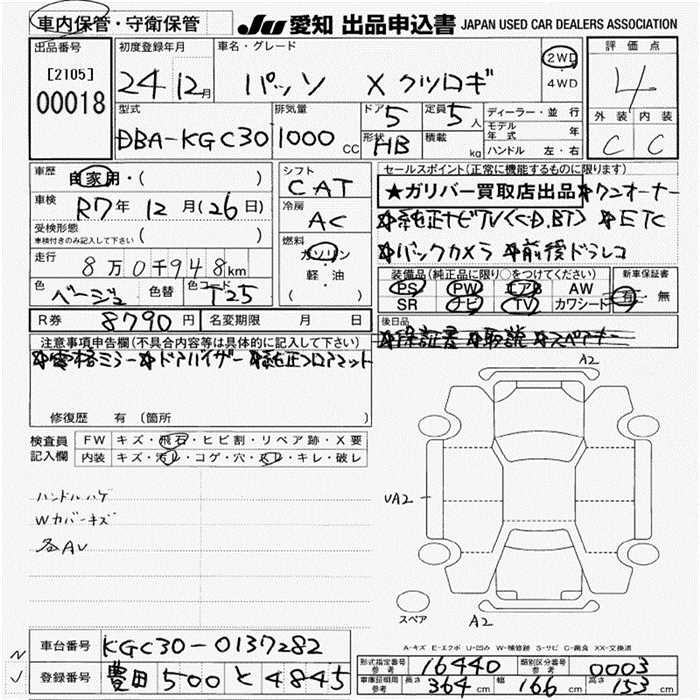 車内保管・守衛保管
JU 愛知 出品申込書 JAPAN USED CAR DEALERS ASSOCIATION
出品番号
[2105]
00018
初度登録年月
24 12月
車名・グレード
パッソ X クツロギ
2WD
・
4WD
評価点
4
外装 内装
C C
型式
DBA-KGC30
排気量
1000 CC
ドア 5
形状 HB
定員 5人
積載 kg
ディーラー・並行
モデル年式 年
ハンドル 左・右
車歴 自家用・( )
車検 R7年 12月(26日)
受検形態
車検付きのみ記入して下さい ( )
走行 8万0千948km
色 ベージュ 色替 色コード T25
シフト
CAT
冷房
AC
燃料
ガソリン
・
軽・油
( )
セールスポイント(正常に機能するものに限ります)
★ガリバー買取店出品☆ワンオーナー
☆純正ナビTV(CD.BT) ☆ETC
☆バックカメラ ☆前後ドラレコ
装備品(純正品に限り○をつけてください)
PS PW エアB AW
SR ナビ TV カワシート
新車保証書
有・無
R券 8790円 名変期限 月 日
後日品
☆保証書 ☆取説 ☆スペアキー
注意事項申告欄(不具合内容等は具体的に記入して下さい)
☆電格ミラー☆ドアバイザー☆純正フロアマット
修復歴 有 (箇所
検査員
記入欄
FW キズ・飛石・ヒビ割・リペア跡・X要
内装 キズ・汚レ・コゲ・穴・スレ・キレ・破レ
ハンドルハゲ
Wカバーキズ
AV
A2
UA2
スペア
A2
A-キズ E-エクボ U-凹み W-補修跡 S-サビ C-腐食 XX-交換済
車台番号 KGC30-0137282
登録番号 豊田 500 と 4845
型式指定番号
参考
16440
類別区分番号
参考
0003
車庫証明用
参考
長さ 364cm 幅 166cm 高さ 153cm